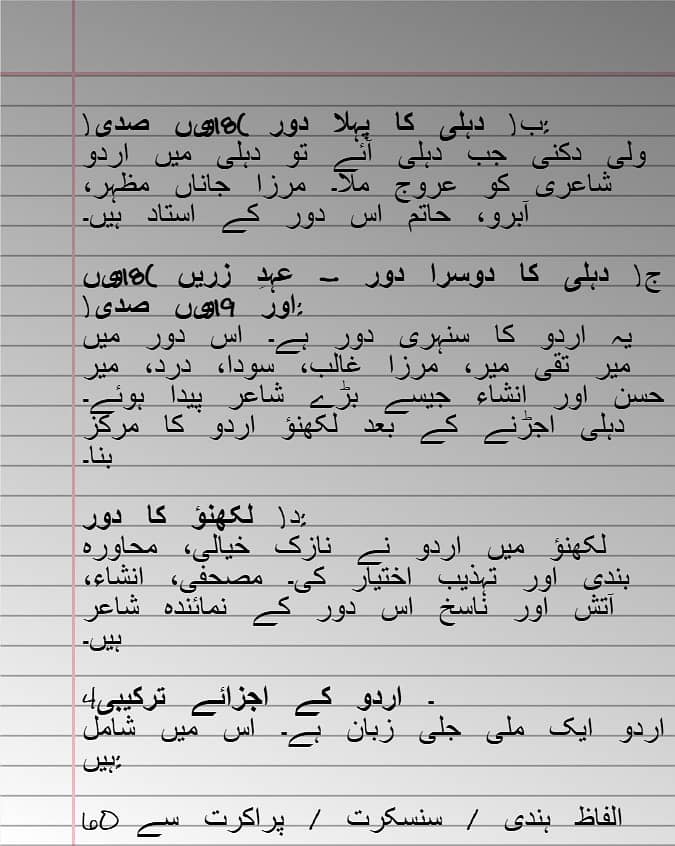 ب) دہلی کا پہلا دور (18ویں صدی):
ولی دکنی جب دہلی آئے تو دہلی میں اردو
شاعری کو عروج ملا۔ مرزا جاناں مظہر،
آبرو، حاتم اس دور کے استاد ہیں۔
ج) دہلی کا دوسرا دور – عہدِ زریں (18ویں
اور 19ویں صدی):
یہ اردو کا سنہری دور ہے۔ اس دور میں
میر تقی میر، مرزا غالب، سودا، درد، میر
حسن اور انشاء جیسے بڑے شاعر پیدا ہوئے۔
دہلی اجڑنے کے بعد لکھنؤ اردو کا مرکز
بنا۔
د) لکھنؤ کا دور:
لکھنؤ میں اردو نے نازک خیالی، محاورہ
بندی اور تہذیب اختیار کی۔ مصحفی، انشاء،
آتش اور ناسخ اس دور کے نمائندہ شاعر
ہیں۔
4۔ اردو کے اجزائے ترکیبی
اردو ایک ملی جلی زبان ہے۔ اس میں شامل
ہیں:
الفاظ ہندی / سنسکرت / پراکرت سے 60